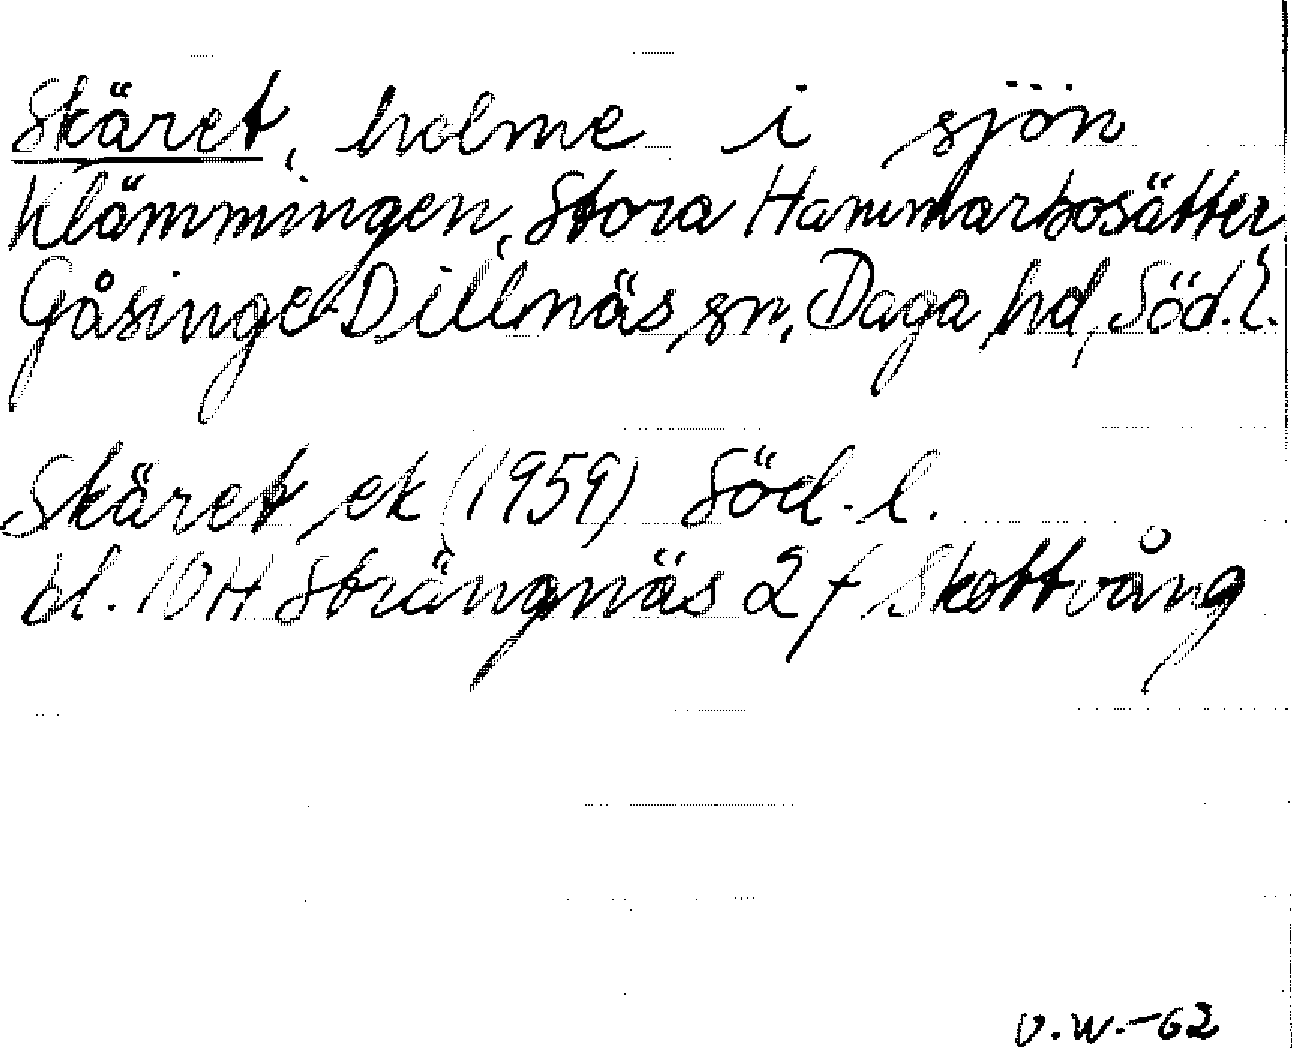 Skäret, holme i sjön
Klämmingen, Stora Hammarbosätter,
Gåsinge-Dillnäs sn, Daga hd, Söd.l.
Skäret ek (1959) Söd. l.
bl. 10H Strängnäs 2f Skottvång
V.W.-62